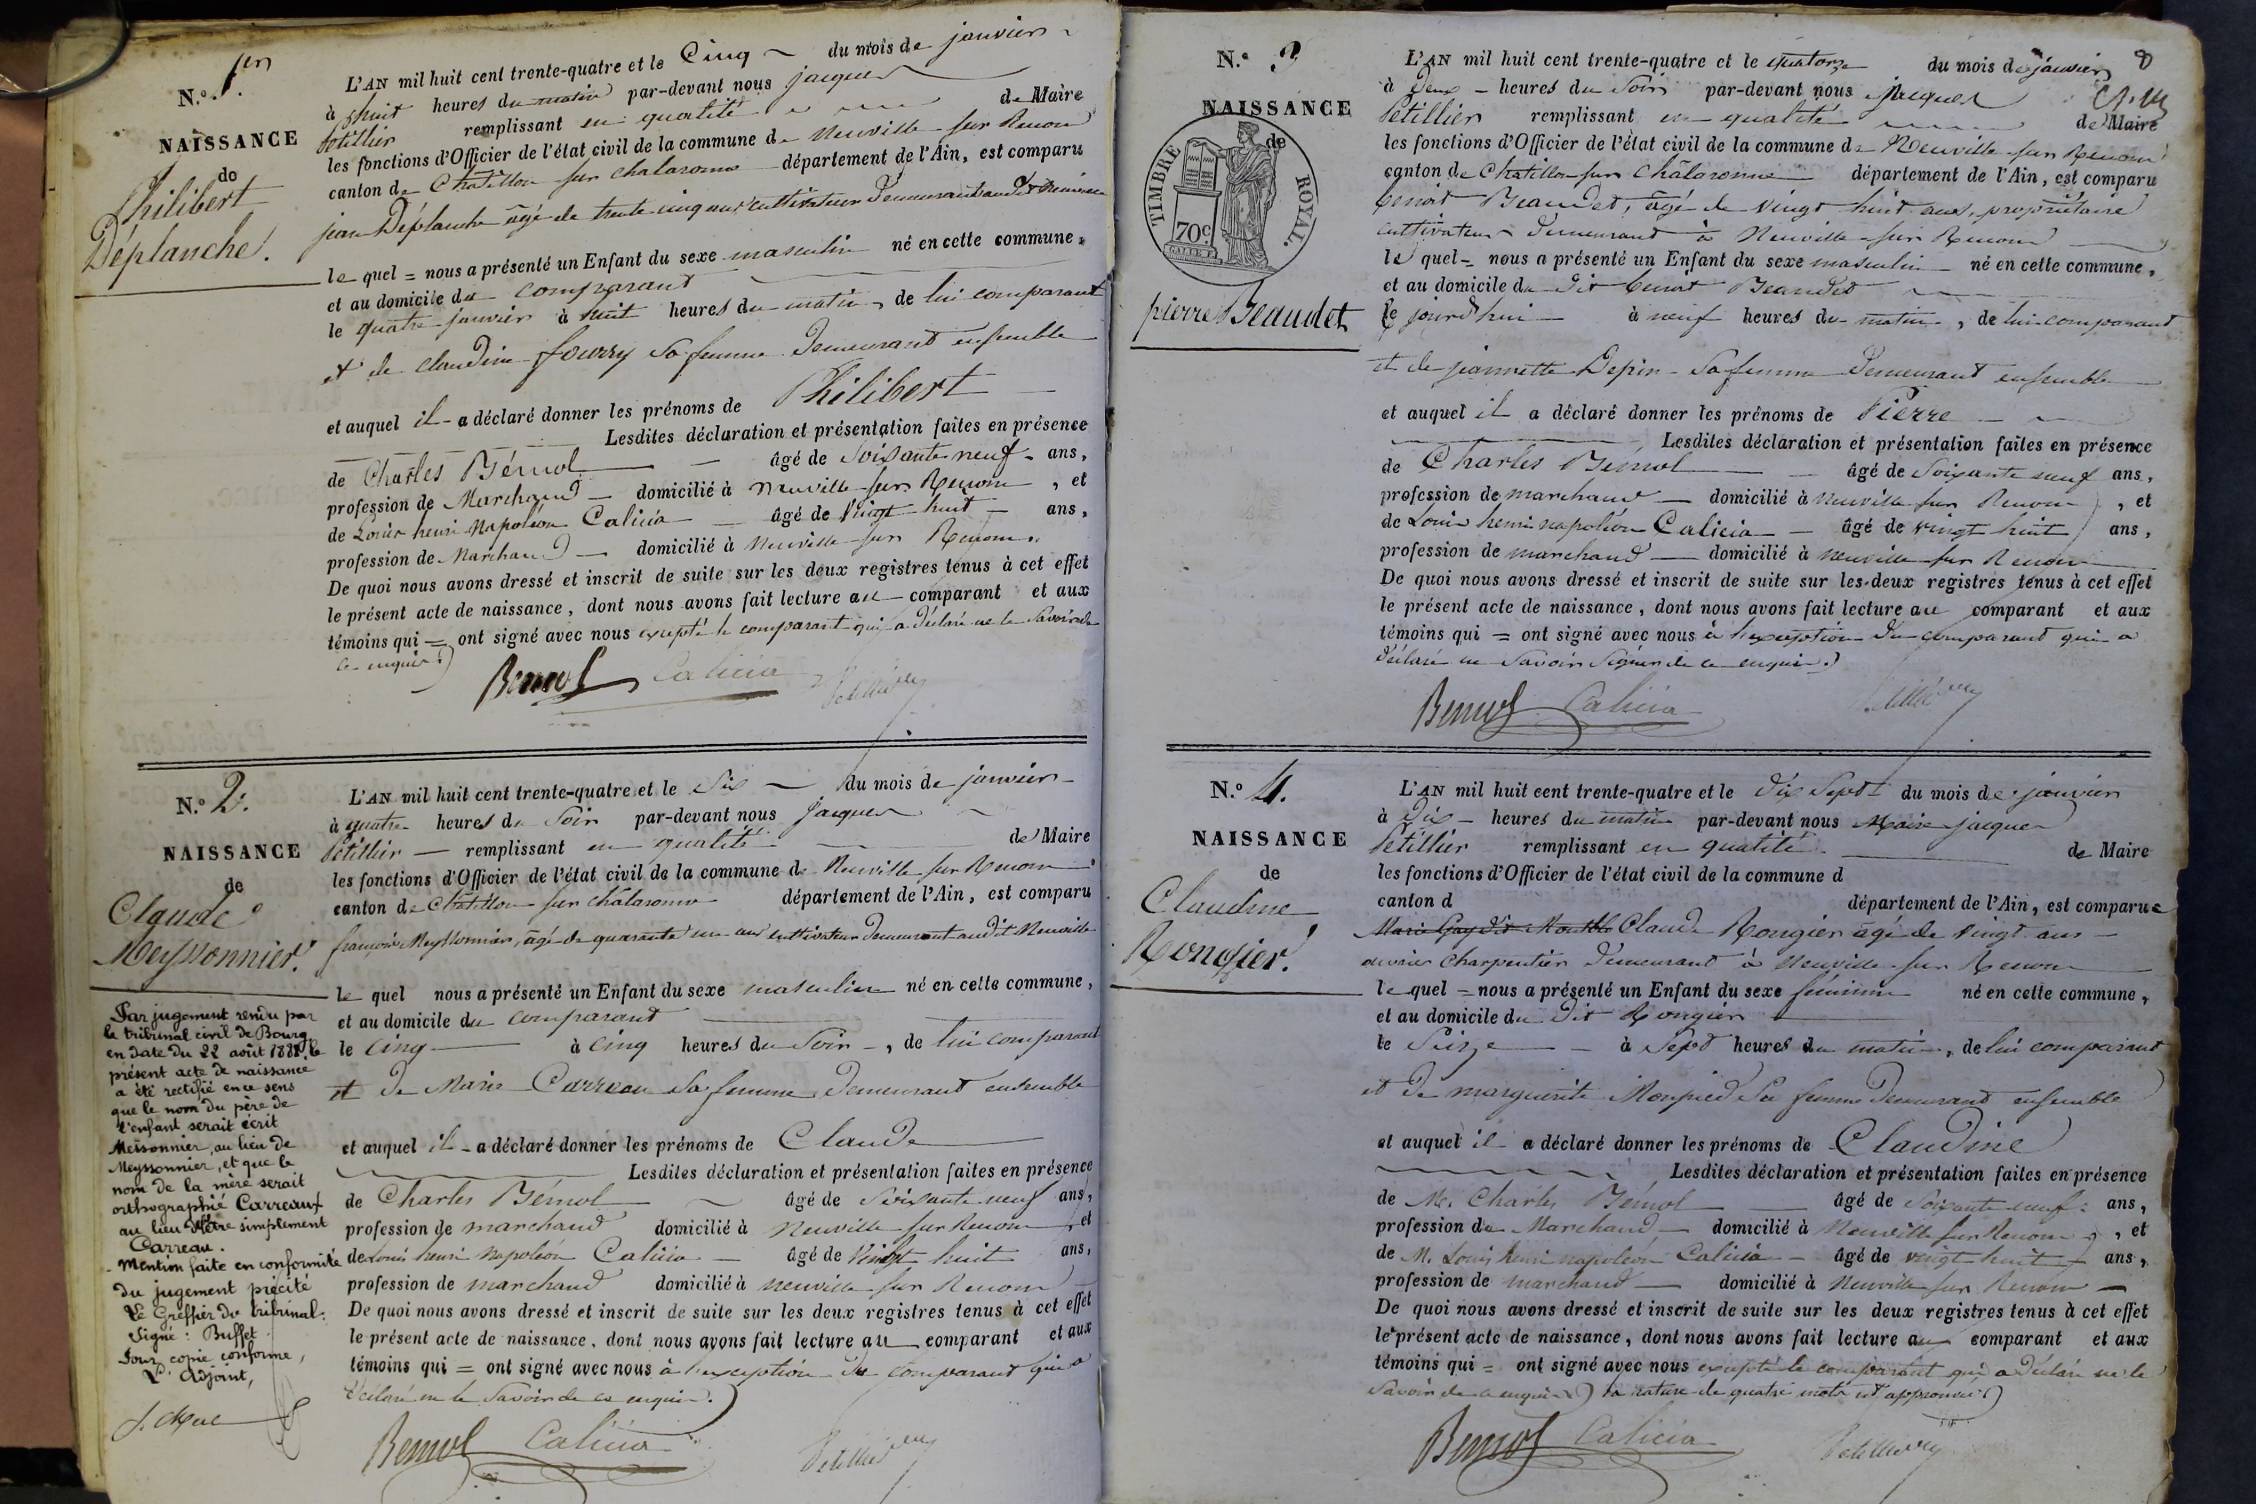 N.º 1.er
NAISSANCE
de
Philibert
Déplanche.
L'AN mil huit cent trente-quatre et le Cinq du mois de janvier
à huit heures du matin par-devant nous jacques
Pétillier remplissant en qualité de Maire
les fonctions d'Officier de l'état civil de la commune de Neuville sur Renom
canton de Châtillon sur chalaronne département de l'Ain, est comparu
jean Déplanche âgé de trente cinq ans, cultivateur demeurant audit Neuville
le quel = nous a présenté un Enfant du sexe masculin né en cette commune,
et au domicile du comparant
le quatre janvier à huit heures du matin, de lui comparant
et de claudine fourry sa femme demeurant ensemble
et auquel il a déclaré donner les prénoms de Philibert
Lesdites déclaration et présentation faites en présence
de Charles Bémol âgé de soixante neuf ans,
profession de Marchand domicilié à Neuville sur Renom, et
de Louis henri Napoléon Calicia âgé de vingt huit ans,
profession de Marchand domicilié à Neuville sur Renom.
De quoi nous avons dressé et inscrit de suite sur les deux registres tenus à cet effet
le présent acte de naissance, dont nous avons fait lecture au comparant et aux
témoins qui = ont signé avec nous excepté le comparant qui a déclaré ne le savoir de
ce enquis.)
Bemol Calicia Petillier
N.º 2.
NAISSANCE
de
Claude
Meyssonnier.
Par jugement rendu par
le tribunal civil de Bourg
en date du 22 août 1888, le
présent acte de naissance
a été rectifié en ce sens
que le nom du père de
l'enfant serait écrit
Meissonnier, au lieu de
Meyssonnier, et que le
nom de la mère serait
orthographié Carreaux
au lieu d'être simplement
Carreau.
Mention faite en conformité
du jugement précité
Le Greffier du tribunal:
Signé: Buffet
Pour copie conforme,
L'adjoint,
L'AN mil huit cent trente-quatre et le Six du mois de janvier
à quatre heures du Soir par-devant nous jacques
Pétillier remplissant en qualité de Maire
les fonctions d'Officier de l'état civil de la commune de Neuville sur Renom
canton de Châtillon sur châlaronne département de l'Ain, est comparu
françois Meyssonnier, âgé de quarante un ans cultivateur demeurant audit Neuville
le quel nous a présenté un Enfant du sexe masculin né en cette commune,
et au domicile du comparant
le Cinq à cinq heures du Soir, de lui comparant
et de Marie Carreau sa femme demeurant ensemble
et auquel il a déclaré donner les prénoms de Claude
Lesdites déclaration et présentation faites en présence
de Charles Bémol âgé de soixante neuf ans,
profession de marchand domicilié à Neuville sur Renom, et
de Louis henri Napoléon Calicia âgé de vingt huit ans,
profession de marchand domicilié à Neuville sur Renom
De quoi nous avons dressé et inscrit de suite sur les deux registres tenus à cet effet
le présent acte de naissance, dont nous avons fait lecture au comparant et aux
témoins qui = ont signé avec nous à l'exception du comparant qui a
déclaré ne le Savoir de ce enquis.)
Bemol Calicia Petillier
8
N.º 3
NAISSANCE
de
TIMBRE ROYAL.
70c.
pierre Beaudet
L'AN mil huit cent trente-quatre et le quatorze du mois de janvier
à deux heures du Soir par-devant nous jacques
Pétillier remplissant en qualité de Maire
les fonctions d'Officier de l'état civil de la commune de Neuville sur Renom
canton de Chatillon sur Châlaronne département de l'Ain, est comparu
benoit Beaudet, âgé de vingt huit ans, propriétaire
cultivateur demeurant à Neuville sur Renom
le quel = nous a présenté un Enfant du sexe masculin né en cette commune,
et au domicile du dit benoit Beaudet
le jourd'hui à neuf heures du matin, de lui comparant
et de jeannette Depin sa femme demeurant ensemble
et auquel il a déclaré donner les prénoms de Pierre
Lesdites déclaration et présentation faites en présence
de Charles Bémol âgé de Soixante neuf ans,
profession de marchand domicilié à Neuville sur Renom, et
de Louis henri napoléon Calicia âgé de vingt huit ans,
profession de marchand domicilié à Neuville sur Renom
De quoi nous avons dressé et inscrit de suite sur les deux registres tenus à cet effet
le présent acte de naissance, dont nous avons fait lecture au comparant et aux
témoins qui = ont signé avec nous à l'exception du comparant qui a
déclaré ne Savoir Signer de ce enquis.)
Bemol Calicia Petillier
N.º 4.
NAISSANCE
de
Claudine
Rongier.
L'AN mil huit cent trente-quatre et le dix Sept du mois de janvier
à dix heures du matin par-devant nous Maire jacques
Pétillier remplissant en qualité de Maire
les fonctions d'Officier de l'état civil de la commune d
canton d département de l'Ain, est comparu
Claude Rongier âgé de vingt ans
ouvrier charpentier demeurant à Neuville sur Renom
le quel = nous a présenté un Enfant du sexe féminin né en cette commune,
et au domicile du dit Rongier
le Seize à Sept heures du matin, de lui comparant
et de marguerite Monpied sa femme demeurant ensemble
et auquel il a déclaré donner les prénoms de Claudine
Lesdites déclaration et présentation faites en présence
de M. Charles Bémol âgé de Soixante neuf ans,
profession de Marchand domicilié à Neuville sur Renom, et
de M. Louis henri napoléon Calicia âgé de vingt huit ans,
profession de marchand domicilié à Neuville sur Renom
De quoi nous avons dressé et inscrit de suite sur les deux registres tenus à cet effet
le présent acte de naissance, dont nous avons fait lecture au comparant et aux
témoins qui = ont signé avec nous excepté le comparant qui a déclaré ne le
Savoir de ce enquis) la rature de quatre mots est approuvée)
Bemol Calicia Petillier